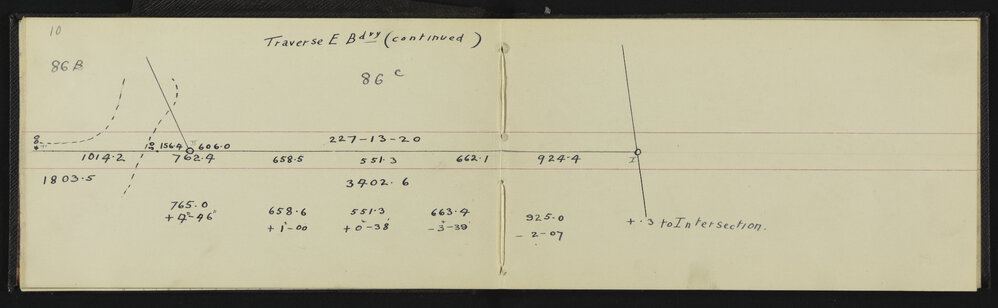 10
Traverse E Bdvy (continued)
86 B
86 c
227-13-20
156.4 606.0
1014.2 762.4 658.5 551.3 662.1 924.4 I
1803.5 3402.6
765.0 658.6 551.3 663.4 925.0
+ 4°-46' + 1°-00 + 0°-38' - 3°-39' - 2-07
+ .3 to Intersection.